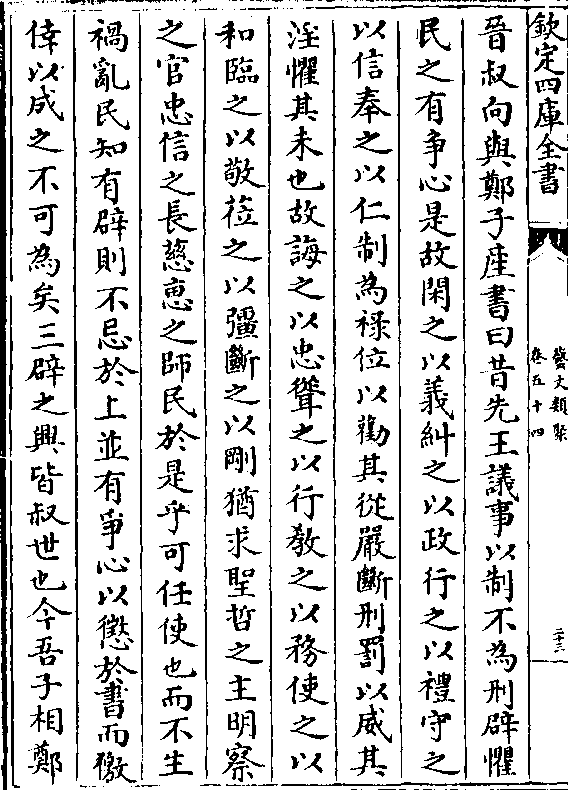 欽定四庫全書
藝文類聚
卷五十四
二十三
晉叔向與鄭子產書曰昔先王議事以制不為刑辟懼
民之有爭心是故閑之以義糾之以政行之以禮守之
以信奉之以仁制為祿位以勸其從嚴斷刑罰以威其
淫懼其未也故誨之以忠聳之以行教之以務使之以
和臨之以敬蒞之以彊斷之以剛猶求聖哲之主明察
之官忠信之長慈惠之師民於是乎可任使也而不生
禍亂民知有辟則不忌於上並有爭心以懲於書而徼
倖以成之不可為矣三辟之興皆叔世也今吾子相鄭